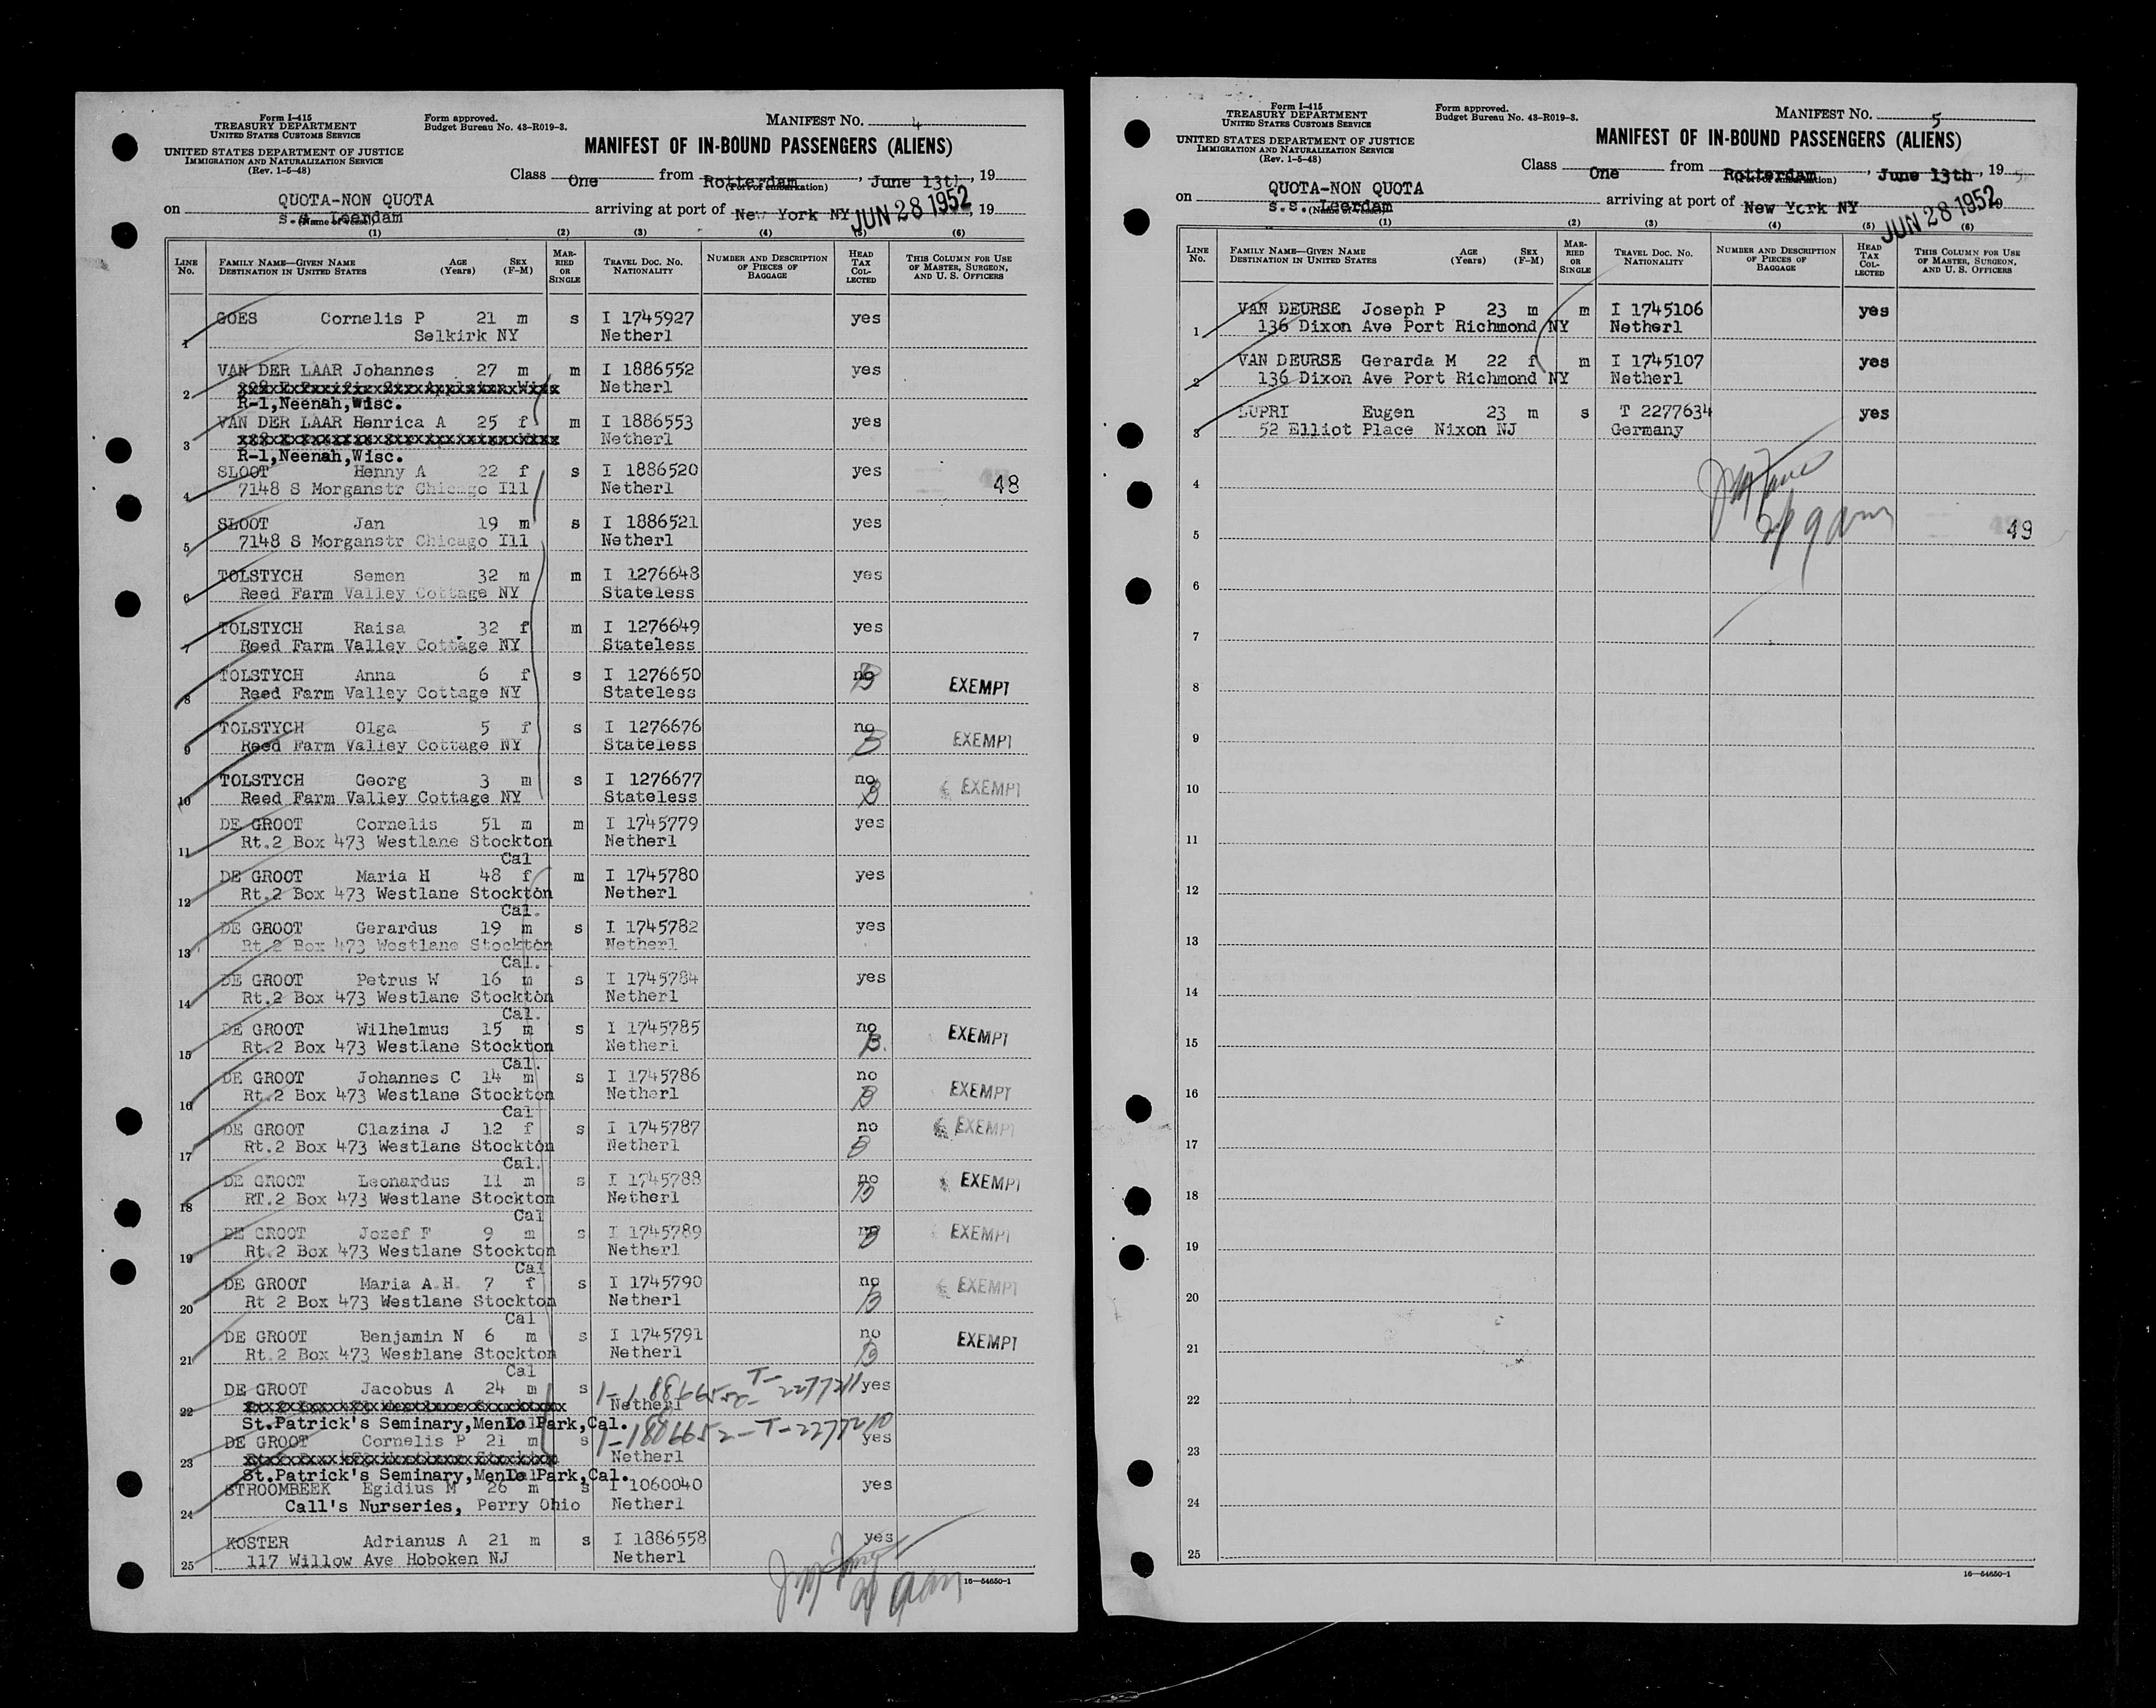 Form I-415
TREASURY DEPARTMENT
UNITED STATES CUSTOMS SERVICE
UNITED STATES DEPARTMENT OF JUSTICE
IMMIGRATION AND NATURALIZATION SERVICE
(Rev. 1-5-48)
Form approved.
Budget Bureau No. 43-R019-3.
MANIFEST NO. 4
MANIFEST OF IN-BOUND PASSENGERS (ALIENS)
Class One from Rotterdam, June 13th, 19
(Port of embarkation)
QUOTA-NON QUOTA
on s.s. Leerdam arriving at port of New York NY JUN 28 1952, 19
(Name of vessel)
(1) (2) (3) (4) (5) (6)
LINE No. FAMILY NAME—GIVEN NAME DESTINATION IN UNITED STATES AGE (Years) SEX (F-M) MARRIED OR SINGLE TRAVEL DOC. NO. NATIONALITY NUMBER AND DESCRIPTION OF PIECES OF BAGGAGE HEAD TAX COLLECTED THIS COLUMN FOR USE OF MASTER, SURGEON, AND U. S. OFFICERS
GOES Cornelis P 21 m s I 1745927 yes
1 Selkirk NY Netherl
VAN DER LAAR Johannes 27 m m I 1886552 yes
2 Netherl
R-1,Neenah,Wisc.
VAN DER LAAR Henrica A 25 f m I 1886553 yes
3 Netherl
R-1,Neenah,Wisc.
SLOOT Henny A 22 f s I 1886520 yes
4 7148 S Morganstr Chicago Ill Netherl 48
SLOOT Jan 19 m s I 1886521 yes
5 7148 S Morganstr Chicago Ill Netherl
TOLSTYCH Semen 32 m m I 1276648 yes
6 Reed Farm Valley Cottage NY Stateless
TOLSTYCH Raisa 32 f m I 1276649 yes
7 Reed Farm Valley Cottage NY Stateless
TOLSTYCH Anna 6 f s I 1276650 no EXEMPT
8 Reed Farm Valley Cottage NY Stateless
TOLSTYCH Olga 5 f s I 1276676 no EXEMPT
9 Reed Farm Valley Cottage NY Stateless
TOLSTYCH Georg 3 m s I 1276677 no EXEMPT
10 Reed Farm Valley Cottage NY Stateless
DE GROOT Cornelis 51 m m I 1745779 yes
11 Rt.2 Box 473 Westlane Stockton Netherl
Cal
DE GROOT Maria H 48 f m I 1745780 yes
12 Rt.2 Box 473 Westlane Stockton Netherl
Cal.
DE GROOT Gerardus 19 m s I 1745782 yes
13 Rt.2 Box 473 Westlane Stockton Netherl
Cal.
DE GROOT Petrus W 16 m s I 1745784 yes
14 Rt.2 Box 473 Westlane Stockton Netherl
Cal.
DE GROOT Wilhelmus 15 m s I 1745785 no EXEMPT
15 Rt.2 Box 473 Westlane Stockton Netherl B.
Cal.
DE GROOT Johannes C 14 m s I 1745786 no EXEMPT
16 Rt.2 Box 473 Westlane Stockton Netherl B
Cal
DE GROOT Clazina J 12 f s I 1745787 no EXEMPT
17 Rt.2 Box 473 Westlane Stockton Netherl B
Cal.
DE GROOT Leonardus 11 m s I 1745788 no EXEMPT
18 RT.2 Box 473 Westlane Stockton Netherl B
Cal
DE GROOT Jozef F 9 m s I 1745789 no EXEMPT
19 Rt.2 Box 473 Westlane Stockton Netherl B
Cal
DE GROOT Maria A.H. 7 f s I 1745790 no EXEMPT
20 Rt 2 Box 473 Westlane Stockton Netherl B
Cal
DE GROOT Benjamin N 6 m s I 1745791 no EXEMPT
21 Rt.2 Box 473 Westlane Stockton Netherl B
Cal
DE GROOT Jacobus A 24 m s T-2277211 yes
22 Netherl
St.Patrick's Seminary,Menlo Park,Cal.
DE GROOT Cornelis P 21 m s T-2277210 yes
23 Netherl
St.Patrick's Seminary,Menlo Park,Cal.
STROOMBEEK Egidius M 26 m s I 1060040 yes
24 Call's Nurseries, Perry Ohio Netherl
KOSTER Adrianus A 21 m s I 1886558 yes
25 117 Willow Ave Hoboken NJ Netherl
16—54650-1
Form I-415
TREASURY DEPARTMENT
UNITED STATES CUSTOMS SERVICE
UNITED STATES DEPARTMENT OF JUSTICE
IMMIGRATION AND NATURALIZATION SERVICE
(Rev. 1-5-48)
Form approved.
Budget Bureau No. 43-R019-3.
MANIFEST NO. 5
MANIFEST OF IN-BOUND PASSENGERS (ALIENS)
Class One from Rotterdam, June 13th, 19
(Port of embarkation)
QUOTA-NON QUOTA
on s.s. Leerdam arriving at port of New York NY JUN 28 1952, 19
(Name of vessel)
(1) (2) (3) (4) (5) (6)
LINE No. FAMILY NAME—GIVEN NAME DESTINATION IN UNITED STATES AGE (Years) SEX (F-M) MARRIED OR SINGLE TRAVEL DOC. NO. NATIONALITY NUMBER AND DESCRIPTION OF PIECES OF BAGGAGE HEAD TAX COLLECTED THIS COLUMN FOR USE OF MASTER, SURGEON, AND U. S. OFFICERS
VAN DEURSE Joseph P 23 m m I 1745106 yes
1 136 Dixon Ave Port Richmond NY Netherl
VAN DEURSE Gerarda M 22 f m I 1745107 yes
2 136 Dixon Ave Port Richmond NY Netherl
LUPRI Eugen 23 m s T 2277634 yes
3 52 Elliot Place Nixon NJ Germany
4
5 49
6
7
8
9
10
11
12
13
14
15
16
17
18
19
20
21
22
23
24
25
16—54650-1